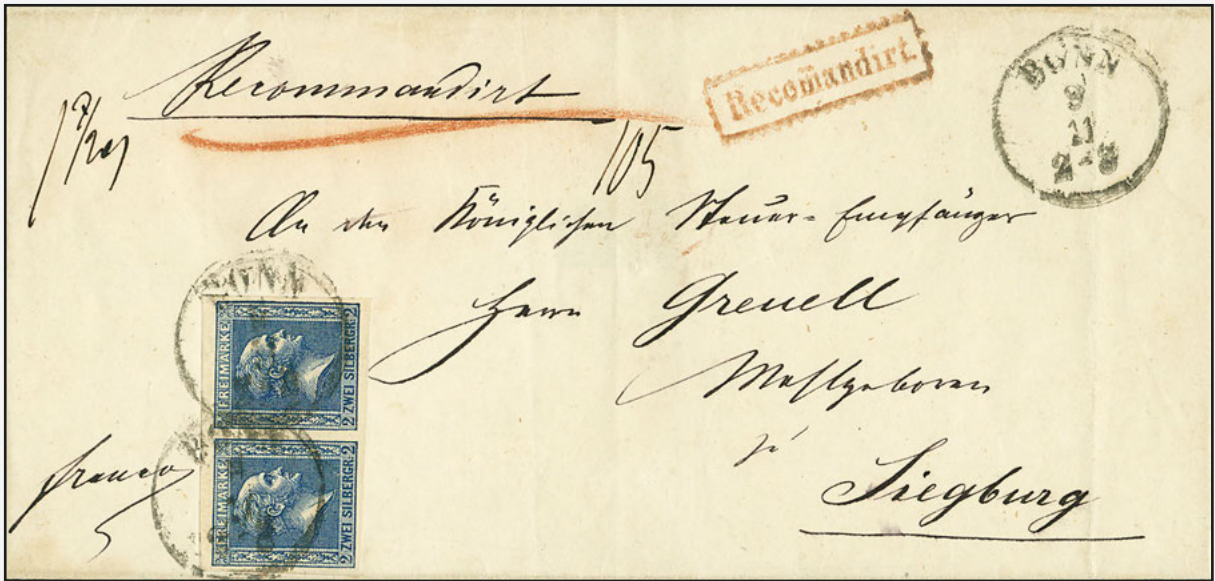 Recommandirt
Recom̄andirt
BONN
9
11
2-3
105
An den Königlichen Steuer-Empfänger
Herrn Grenell
Wohlgeboren
zu
Siegburg
franco
BONN
FREIMARKE
2 ZWEI SILBERGR. 2
FREIMARKE
2 ZWEI SILBERGR. 2